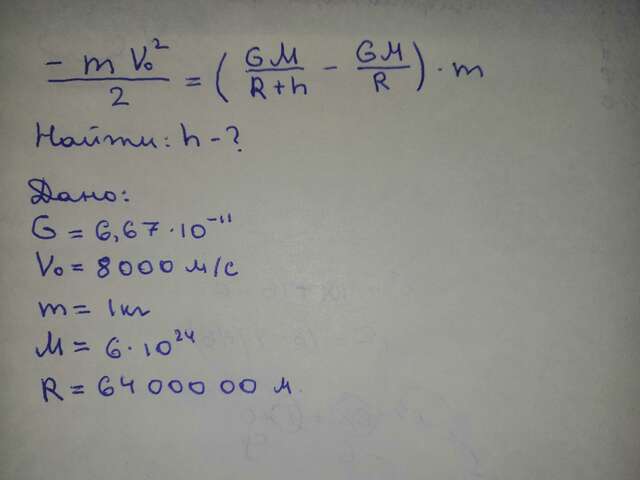 - m V₀² / 2 = ( GM / R+h - GM / R ) · m
Найти: h - ?
Дано:
G = 6,67 · 10⁻¹¹
V₀ = 8000 м/с
m = 1 кг
M = 6 · 10²⁴
R = 64 000 00 м